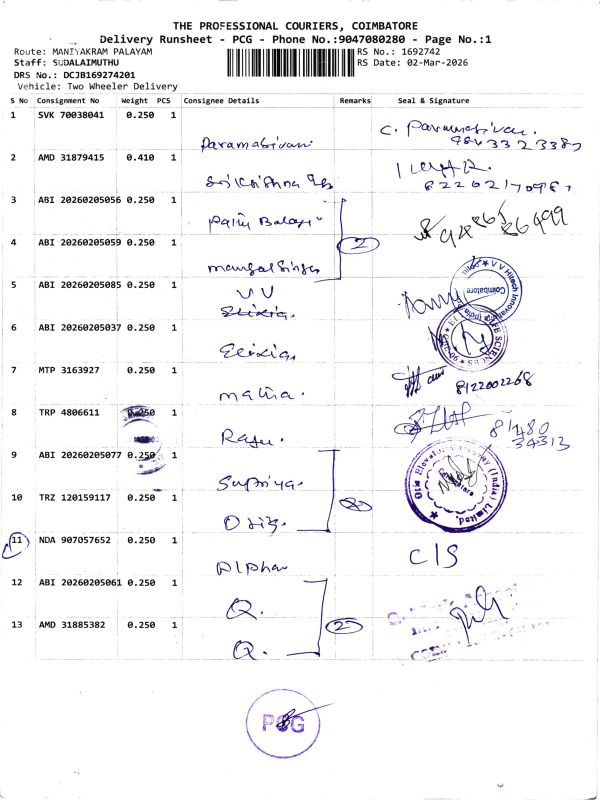 THE PROFESSIONAL COURIERS, COIMBATORE
Delivery Runsheet - PCG - Phone No.:9047080280 - Page No.:1
Route: MANIYAKRAM PALAYAM RS No.: 1692742
Staff: SUDALAIMUTHU RS Date: 02-Mar-2026
DRS No.: DCJB169274201
Vehicle: Two Wheeler Delivery
S No Consignment No Weight PCS Consignee Details Remarks Seal & Signature
1 SVK 70038041 0.250 1
Paramasivam C. Paramasivam.
2 AMD 31879415 0.410 1
Sri Krishna
3 ABI 20260205056 0.250 1
Balaji
4 ABI 20260205059 0.250 1 2
Mangal Singh
5 ABI 20260205085 0.250 1
VV
V V Hitech Innovations
Coimbatore
6 ABI 20260205037 0.250 1
Elixia.
7 MTP 3163927 0.250 1
8122002268
8 TRP 4806611 0.250 1
Raju. 81480
34313
9 ABI 20260205077 0.250 1
Supriya.
10 TRZ 120159117 0.250 1 2
Otis.
Otis Elevator Company (India) Limited.
11 NDA 907057652 0.250 1
Alpha CIS
12 ABI 20260205061 0.250 1
Q.
13 AMD 31885382 0.250 1 2
Q.
PCG